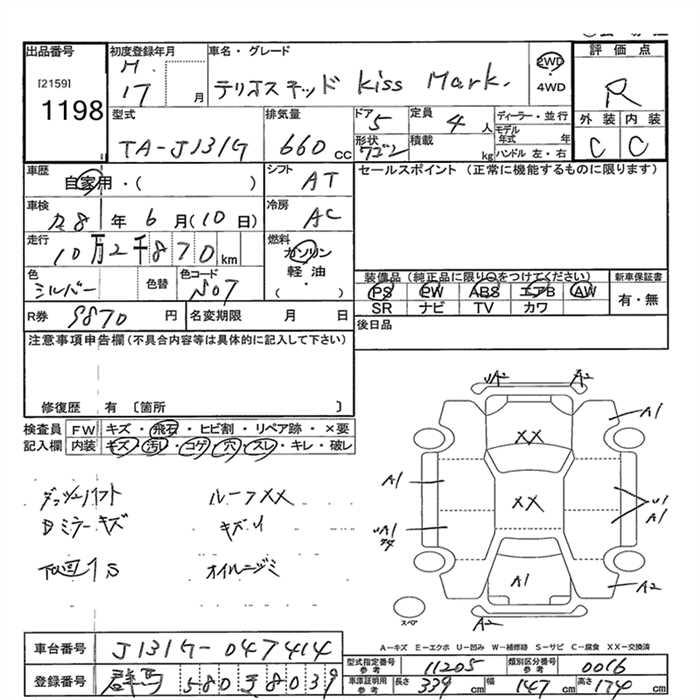 出品番号
[2159]
1198
初度登録年月
H.
17 月
車名・グレード
テリオスキッド Kiss Mark.
2WD
・
4WD
評価点
R
外装 内装
C C
型式
TA-J131G
排気量
660 cc
ドア
5
形状
ワゴン
定員
4 人
積載 kg
ディーラー・並行
モデル
年式 年
ハンドル 左・右
車歴
自家用・( )
シフト
AT
セールスポイント (正常に機能するものに限ります)
車検
8 年 6 月 (10 日)
冷房
AC
走行
10万2千870 km
燃料
ガソリン
軽油
( )
色
シルバー
色替
色コード
No7
装備品 (純正品に限り○をつけてください)
PS PW ABS エアB AW
SR ナビ TV カワ
新車保証書
有・無
R券 9870 円
名変期限 月 日
後日品
注意事項申告欄 (不具合内容等は具体的に記入して下さい)
修復歴 有 〔箇所 〕
検査員
記入欄
FW キズ・飛石・ヒビ割・リペア跡・×要
内装 キズ・汚レ・コゲ・穴・スレ・キレ・破レ
ルーフXX
Dミラーキズ
キズU
下廻りS
オイルニジミ
UA2 A2
A1
XX
A1
XX
U1
A1
UA1
A1
A2
A2
スペア
A-キズ E-エクボ U-凹み W-補修跡 S-サビ C-腐食 XX-交換済
車台番号 J131G-047414
登録番号 群馬 580 8039
型式指定番号
参考
11205
類別区分番号
参考
0016
車庫証明用
参考
長さ 339 cm 幅 147 cm 高さ 174 cm